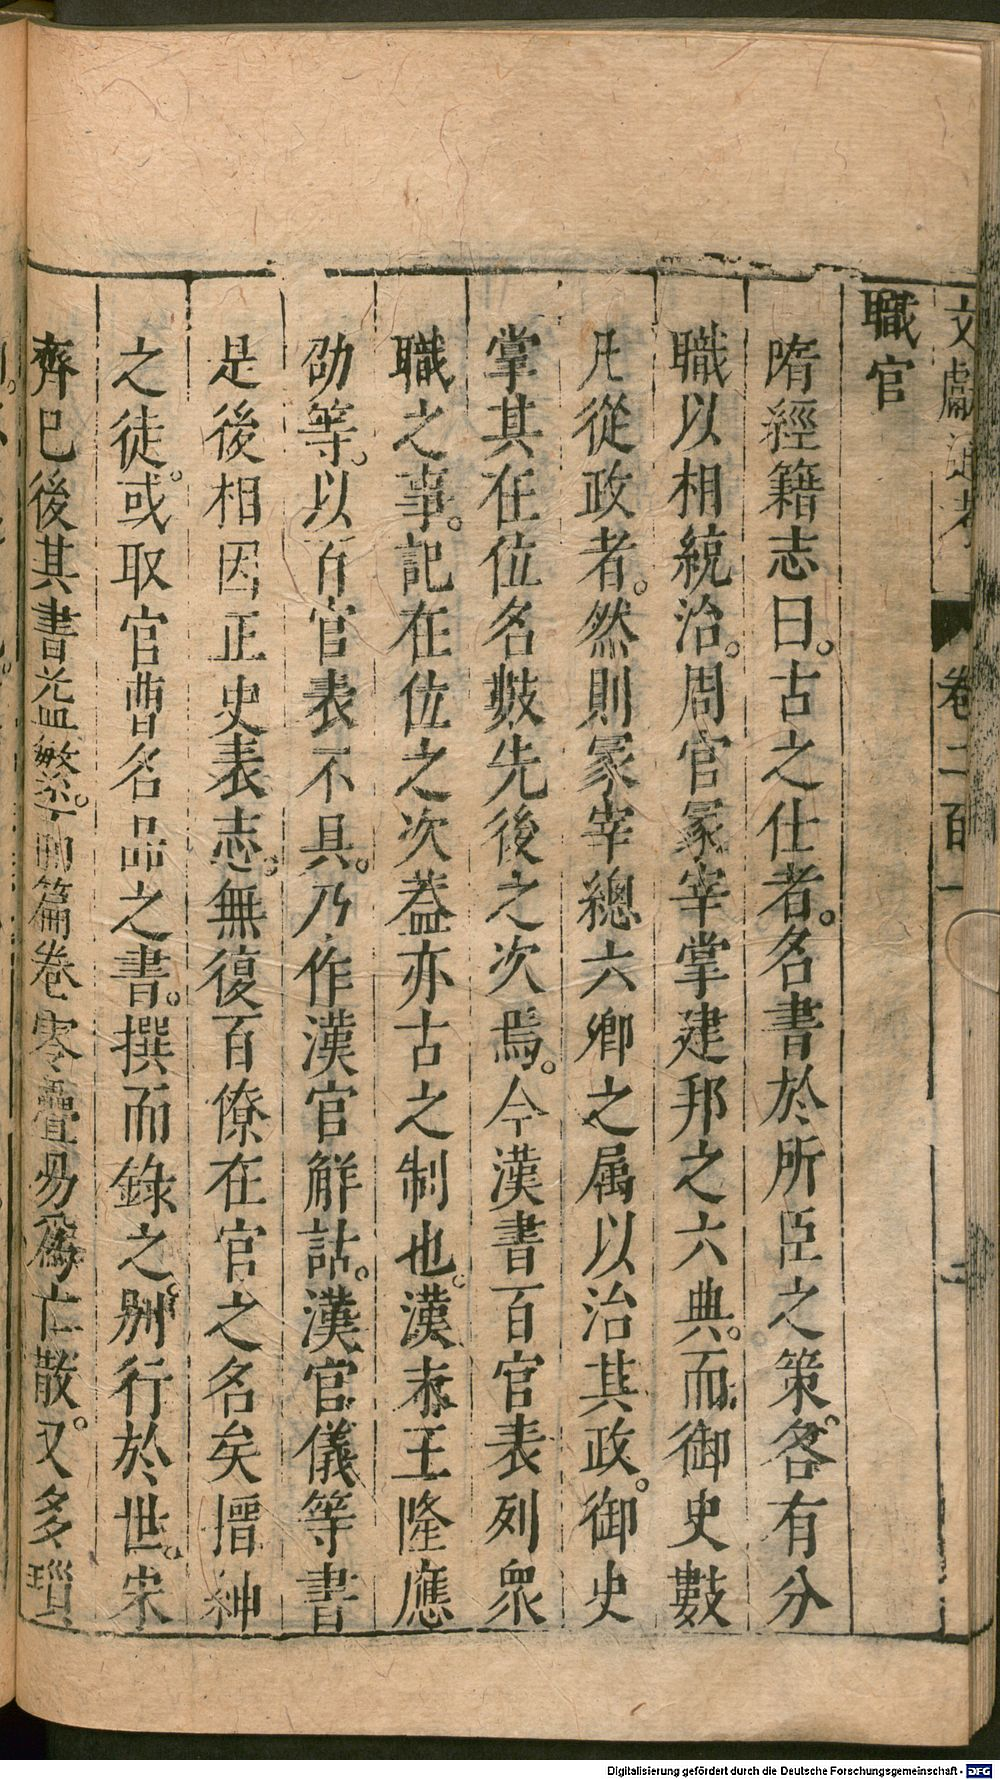 文獻通考 卷二百一 二
職官
隋經籍志曰。古之仕者。名書於所臣之策。各有分
職以相統治。周官冢宰掌建邦之六典。而御史數
凡從政者。然則冢宰總六卿之属以治其政。御史
掌其在位名數先後之次焉。今漢書百官表列眾
職之事。記在位之次蓋亦古之制也。漢末王隆應
劭等。以百官表不具。乃作漢官解詁。漢官儀等書
是後相因正史表志。無復百僚在官之名矣搢紳
之徒。或取官曹名品之書。撰而錄之。别行於世。宋
齊已後其書益繁。而篇卷零疊易爲亡散。又多瑣
Digitalisierung gefördert durch die Deutsche Forschungsgemeinschaft - DFG